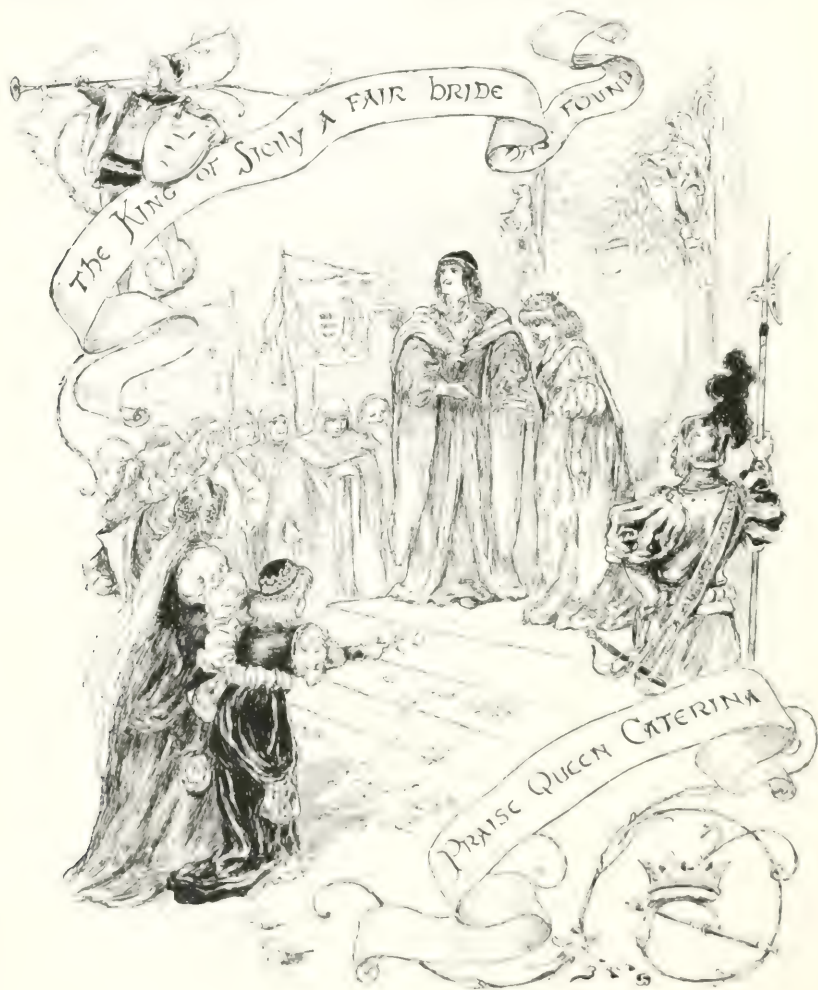 The King of Sicily A FAIR bRIDE FOUND
PRAISE QUEEN CATERINA